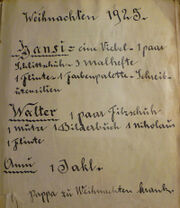 Weihnachten 1925.
Hansi - eine Viebel - 1 paar
Schlittschuh - 3 Malhefte
1 Flinte - 1 Farbenpalette - Schreib-
utensilien
Walter 1 paar Filzschuh
1 Mütze 1 Bilderbuch 1 Nikolaus
1 Flinte
1
Pappa zu Weihnachten krank.